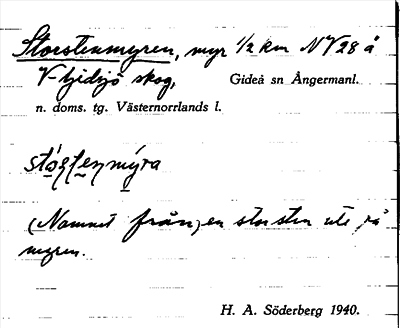 Storstenmyren, myr 1/2 km NV 28 å
V-hjidsjö skog, Gideå sn Ångermanl.
n. doms. tg. Västernorrlands l.
(Namnet från en stor sten ute på
myren.
H. A. Söderberg 1940.